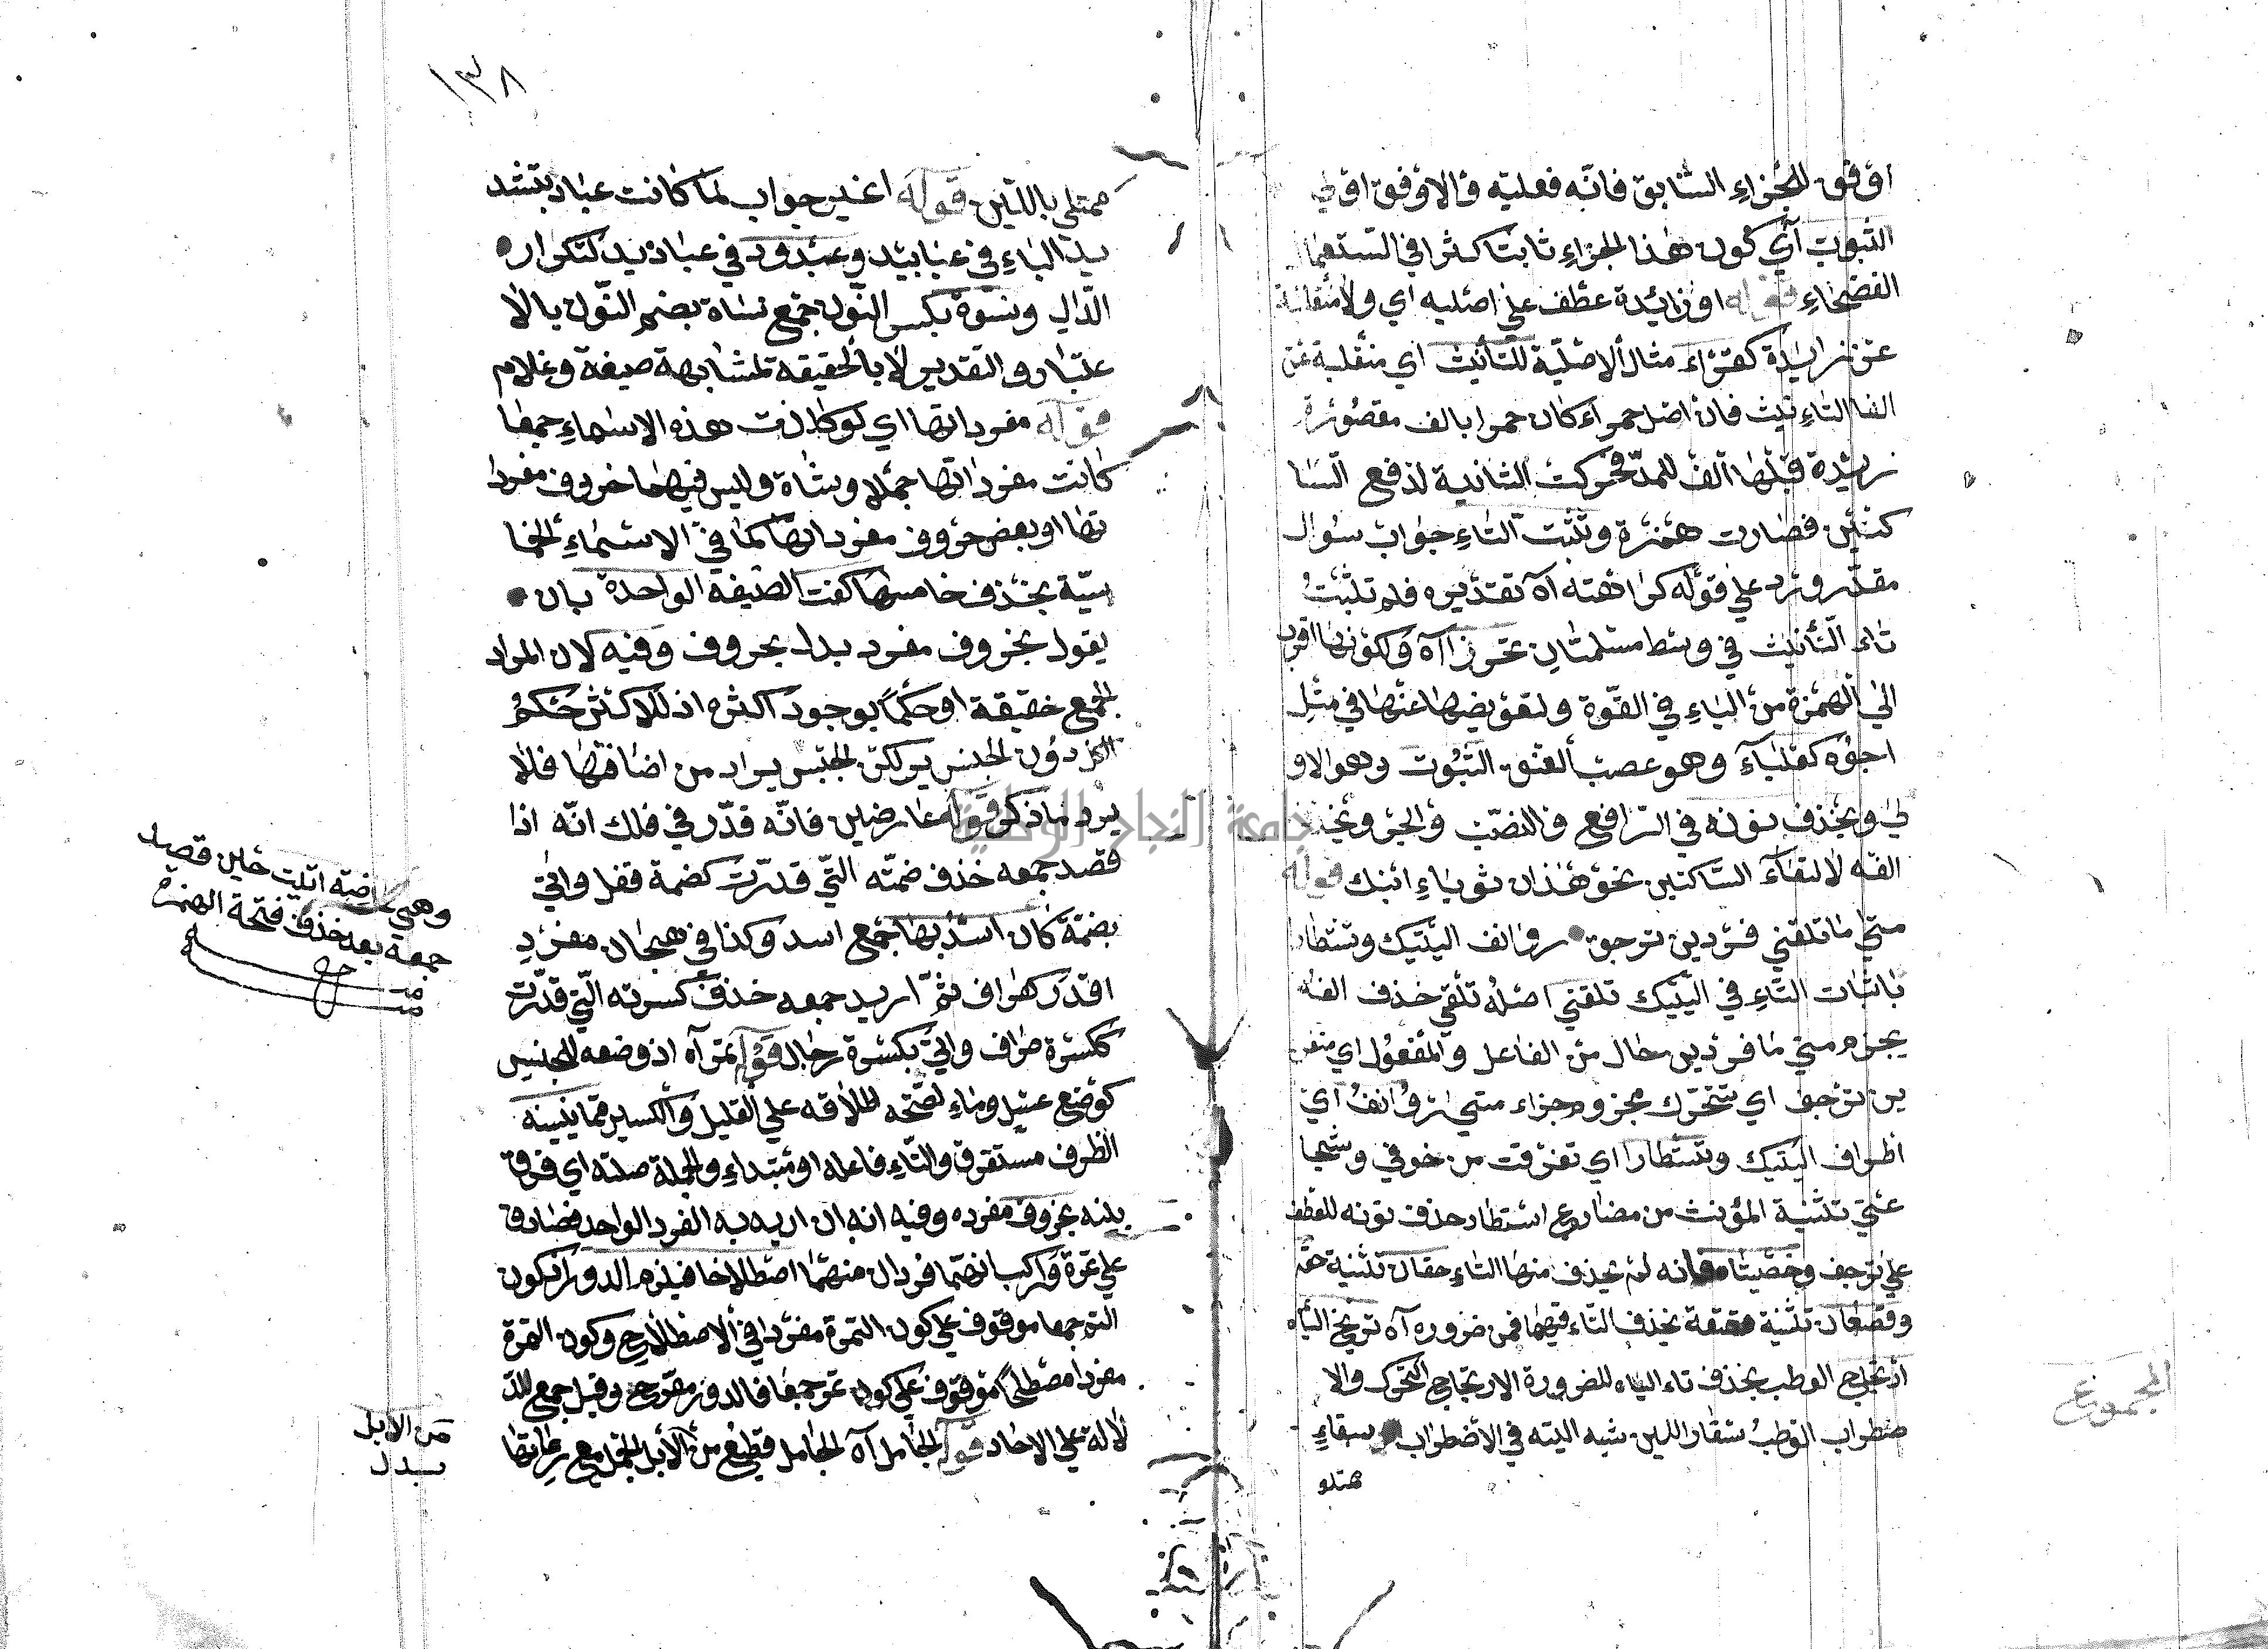 اوفق للجزاء السابق فانه فعليته فالاوفق اولي
الثبوت اي كون هذا الجزاء ثابتا كثرا في استعما
الفصحاء قوله او زائدة عطف علي اصليه اي ولا منقلبة
عن زايدة كقراء مثال الاصلية للتأنيث اي منقلبة عن
الفا التاءنيث فان اصل حمراء كان حمرا بالف مقصورة
زيدة قبلها الف للمد فحركت الثانية لدفع السا
كنين فصارت همزة وتثبت التاء جواب سوال
مقدر وترد علي قوله كراهته اه تقديره فلم تثبت
تاء التأنيث في وسط مسلمتان اه ولكونها اقرب
الي الهمزة من الياء في القوة ولتعويضها عنها في مثل
اجوه كعلباء وهو عصب العنق الثبوت وهو الاو
لي ويحذف نونه في الرافع والنصب والجر ويحذ
الفه لالتقاء الساكنين نحو هذان ثوباء ابنك قوله
متي ما تلقني فردين ترجف روانف اليتيك وتستطا
باثبات التاء في اليتيك تلقني اصله تلقي حذف الفه
يجزم متي ما فردين حال من الفاعل والمفعول اي منفر
ين ترجف اي تتحرك مجزوم جزاء متي روانف اي
اطراف اليتيك وتستطارا اي تفرقت من خوفي وشجا
عتي تثنية المؤنث من مضارع استطار حذف نونه للعطف
علي ترجف وخصيتا فانه لم يحذف منها التاء حقان تثنية حقه
وقصعان تثنية بحذف التاء فيهما فمن ضروره اه ترتج الياه
ارتجاج الوطب بحذف تاء الياه للضرورة الارتجاج التحرك والا
ضطراب الوطب سقاء اللبن شبه اليته في الاضطراب بسقاء
ممتلو
المجموع
١٣٨
ممتلي باللبن قوله اغير جواب لما كانت عباد بتشد
يد الباء في عبابيد وعبدود في عباديد لتكرار
الدال ونسوة بكسر النون جمع نساة بضم النون بالا
عتبار والتقدير لا بالحقيقة لمشابهة صيغة وغلام
قوله مفرداتها اي لو كانت هذه الاسماء جمعا
كانت مفرداتها جملا وشاة وليس فيها حروف مفردا
تها او بعض حروف مفرداتها كما في الاسماء الخما
سية بحذف خامسها كفت الصيغة الواحدة بان
يقول بحروف مفرد بدل بحروف وفيه لان المراد
الجمع حقيقة او حكما بوجود اكثره اذ للاكثر حكم
الكل دون الجنس لكن الجنس يراد من اضافتها فلا
يرد ما ذكر قوله عارضين فانه قدر في فلك انه اذا
قصد جمعه حذف ضمته التي قدرت كضمة قفل واتي
بضمة كان اسد بها جمع اسد وكذا في هجان مفرد
اقدر ثم اريد جمعه حذف كسرته التي قدرت
ككسرة واتي بكسرة رجال قوله تمر اه اذ وضعه للجنس
كوضع عسل وماء لصحة اطلاقه علي القليل والكسير مما بينه
الظرف مستقر والتاء فاعله او مبتداء والجملة صلته اي فرق
بينه بحروف مفرده وفيه انه ان اريد به الفرد الواحد فصادق
علي تمرة وراكب انهما فردان منهما اصطلاحا فيلزم الدور اذ كون
التمر جمعا موقوف علي كون التمرة مفردا في الاصطلاح وكون التمرة
مفردا مصطلحا موقوف علي كون تمر جمعا فالدور مقرر وقيل جمع للد
لالة علي الاحاد قوله الجامل اه الجامل قطيع من الابل الجمل مع رعاتها
وهي ضته اتيت حين قصد
جمعه بعد حذف فتحة الهمزة
منه
من الابل
بدل
جامعة النجاح الوطنية